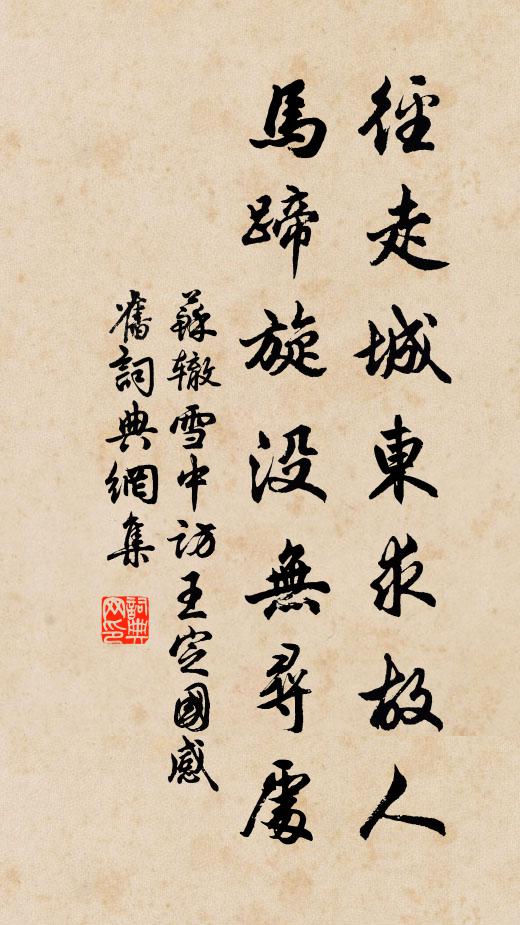 徑走城東求故人
馬蹄旋没無尋處
蘇辙雪中访王定國感
舊詞典網集
詞典网印